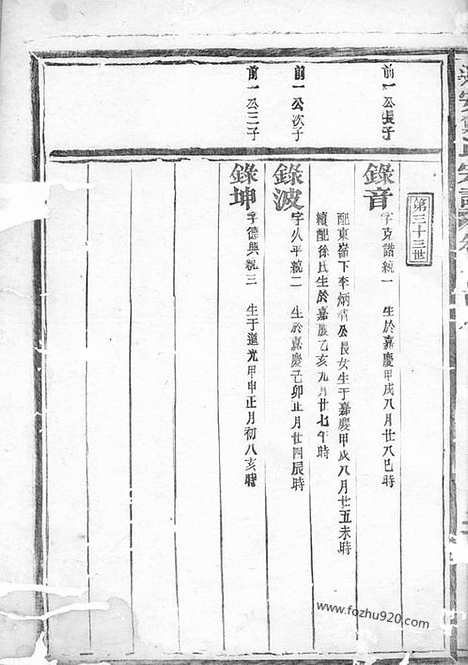 第三十三世
前一公長子
錄音
字克諧統一 生於嘉慶甲戌八月廿八巳時
配東嶺下李炳公長女生于嘉慶甲戌八月廿五未時
續配徐氏生於嘉慶乙亥九月廿七午時
前一公次子
錄波
字久平統二 生於嘉慶己卯正月廿四辰時
前一公三子
錄坤
字德興統三 生于道光甲申正月初八亥時
www.fozhu920.com